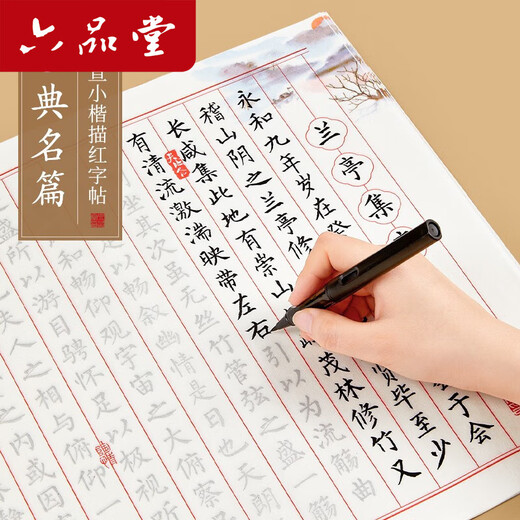 六品堂
宣小楷描红字帖
典名篇
兰亭集
永和九年岁在癸
于会
稽山阴之兰亭修
贤毕至少
长咸集此地有崇山
茂林修竹又
有清流激湍映带左右
引以为流觞曲
坐其次虽无丝竹管弦之盛
畅叙幽情是日也天朗
和畅仰观宇宙之大
察
所以游目骋怀足以极视
夫人之相与俯仰一
之内或因